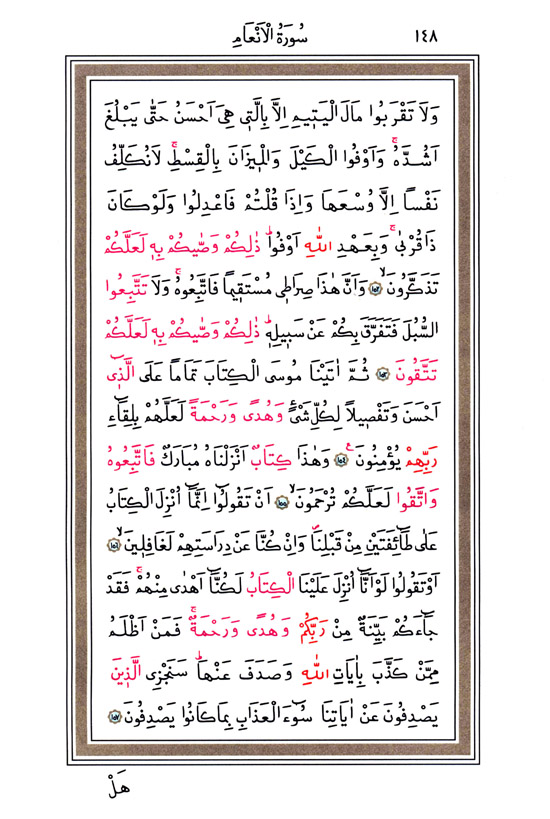 ١٤٨ سُورَةُ الْاَنْعَامِ
وَلَا تَقْرَبُوا مَالَ الْيَتٖيمِ اِلَّا بِالَّتٖى هِىَ اَحْسَنُ حَتّٰى يَبْلُغَ
اَشُدَّهُۚ وَاَوْفُوا الْكَيْلَ وَالْمٖيزَانَ بِالْقِسْطِۚ لَا نُكَلِّفُ
نَفْسًا اِلَّا وُسْعَهَا وَاِذَا قُلْتُمْ فَاعْدِلُوا وَلَوْ كَانَ
ذَا قُرْبٰىۚ وَبِعَهْدِ اللّٰهِ اَوْفُواؕ ذٰلِكُمْ وَصّٰيكُمْ بِهٖ لَعَلَّكُمْ
تَذَكَّرُونَۙ ﴿١٥٢﴾ وَاَنَّ هٰذَا صِرَاطٖى مُسْتَقٖيمًا فَاتَّبِعُوهُۚ وَلَا تَتَّبِعُوا
السُّبُلَ فَتَفَرَّقَ بِكُمْ عَنْ سَبٖيلِهٖؕ ذٰلِكُمْ وَصّٰيكُمْ بِهٖ لَعَلَّكُمْ
تَتَّقُونَ ﴿١٥٣﴾ ثُمَّ اٰتَيْنَا مُوسَى الْكِتَابَ تَمَامًا عَلَى الَّذٖٓى
اَحْسَنَ وَتَفْصٖيلًا لِكُلِّ شَىْءٍ وَهُدًى وَرَحْمَةً لَعَلَّهُمْ بِلِقَٓاءِ
رَبِّهِمْ يُؤْمِنُونَࣖ ﴿١٥٤﴾ وَهٰذَا كِتَابٌ اَنْزَلْنَاهُ مُبَارَكٌ فَاتَّبِعُوهُ
وَاتَّقُوا لَعَلَّكُمْ تُرْحَمُونَۙ ﴿١٥٥﴾ اَنْ تَقُولُٓوا اِنَّمَٓا اُنْزِلَ الْكِتَابُ
عَلٰى طَٓائِفَتَيْنِ مِنْ قَبْلِنَا وَاِنْ كُنَّا عَنْ دِرَاسَتِهِمْ لَغَافِلٖينَۙ ﴿١٥٦﴾
اَوْ تَقُولُوا لَوْ اَنَّٓا اُنْزِلَ عَلَيْنَا الْكِتَابُ لَكُنَّٓا اَهْدٰى مِنْهُمْۚ فَقَدْ
جَٓاءَكُمْ بَيِّنَةٌ مِنْ رَبِّكُمْ وَهُدًى وَرَحْمَةٌۚ فَمَنْ اَظْلَمُ
مِمَّنْ كَذَّبَ بِاٰيَاتِ اللّٰهِ وَصَدَفَ عَنْهَاؕ سَنَجْزِى الَّذٖينَ
يَصْدِفُونَ عَنْ اٰيَاتِنَا سُٓوءَ الْعَذَابِ بِمَا كَانُوا يَصْدِفُونَ ﴿١٥٧﴾
هَلْ